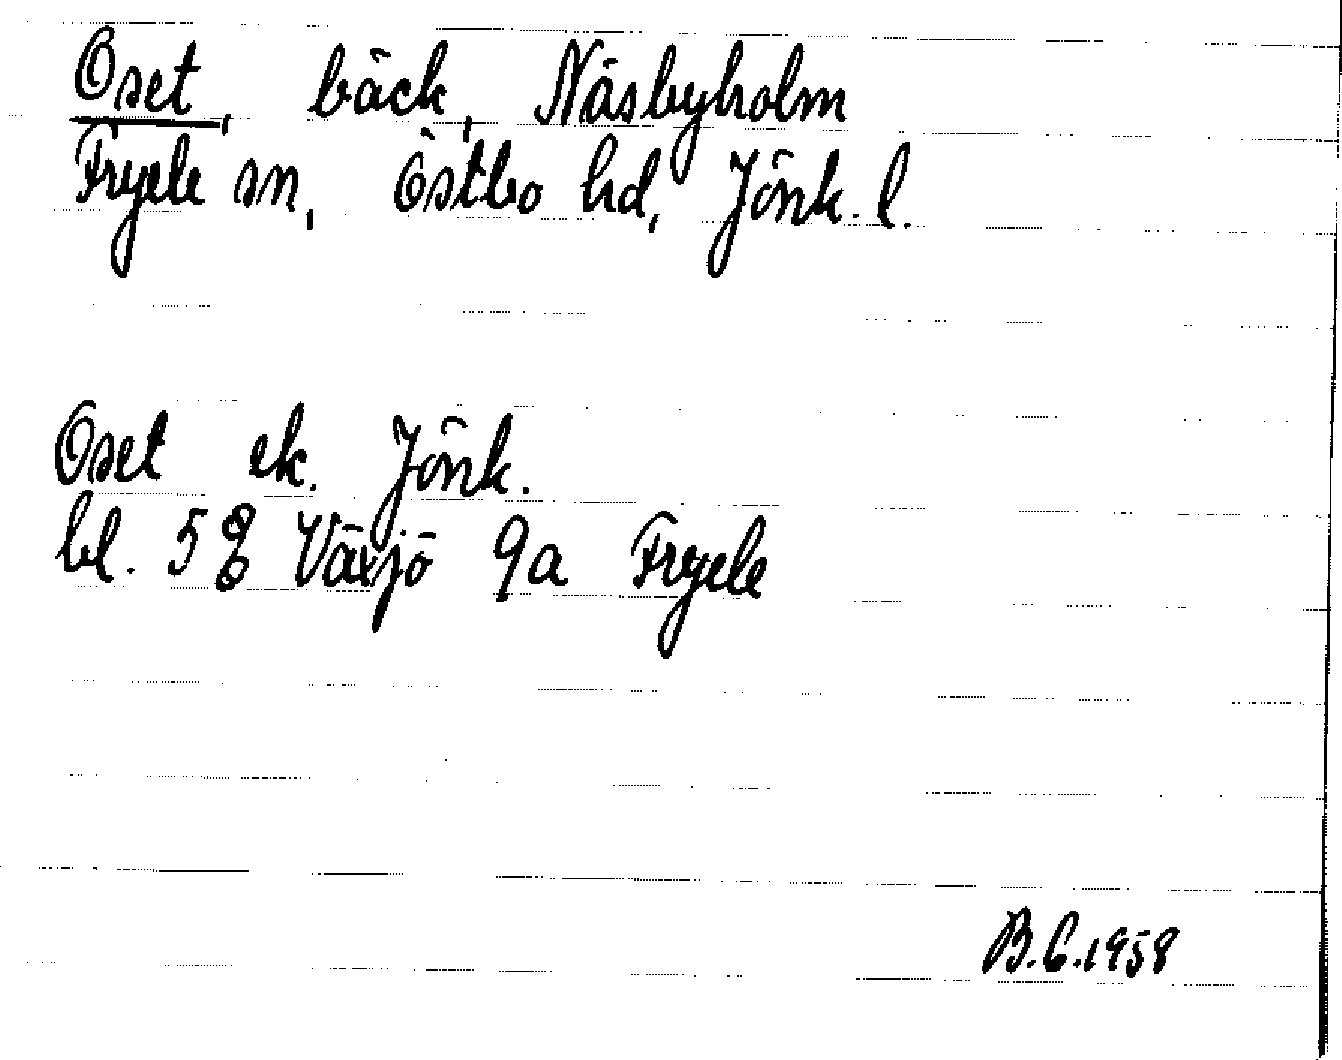 Oset, bäck, Näsbyholm
Fryele sn, Östbo hd, Jönk. l.
Oset ek. Jönk.
bl. 5 E Växjö 9a Fryele
B.C.1958